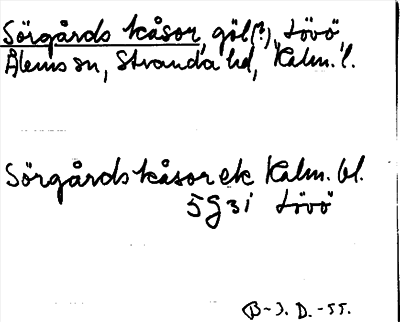 Sörgårds kåsor, göl(?), Lövö,
Ålems sn, Stranda hd, Kalm. l.
Sörgårds kåsor ek Kalm. bl.
5G3i Lövö
B-J. D. -55.